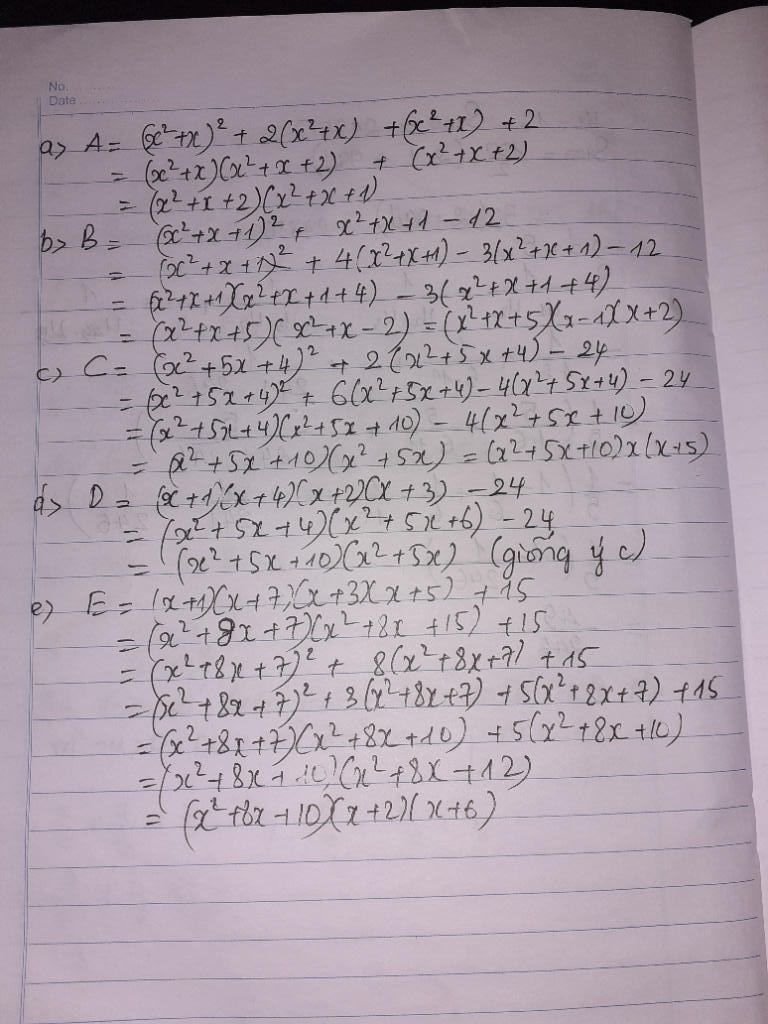 No.
Date
a> A = (x²+x)² + 2(x²+x) + (x²+x) + 2
= (x²+x)(x²+x+2) + (x²+x+2)
= (x²+x+2)(x²+x+1)
b> B = (x²+x+1)² + x²+x+1 - 12
= (x²+x+1)² + 4(x²+x+1) - 3(x²+x+1) - 12
= (x²+x+1)(x²+x+1+4) - 3(x²+x+1+4)
= (x²+x+5)(x²+x-2) = (x²+x+5)(x-1)(x+2)
c> C = (x²+5x+4)² + 2(x²+5x+4) - 24
= (x²+5x+4)² + 6(x²+5x+4) - 4(x²+5x+4) - 24
= (x²+5x+4)(x²+5x+10) - 4(x²+5x+10)
= (x²+5x+10)(x²+5x) = (x²+5x+10)x(x+5)
d> D = (x+1)(x+4)(x+2)(x+3) - 24
= (x²+5x+4)(x²+5x+6) - 24
= (x²+5x+10)(x²+5x) (giống ý c)
e) E = (x+1)(x+7)(x+3)(x+5) + 15
= (x²+8x+7)(x²+8x+15) + 15
= (x²+8x+7)² + 8(x²+8x+7) + 15
= (x²+8x+7)² + 3(x²+8x+7) + 5(x²+8x+7) + 15
= (x²+8x+7)(x²+8x+10) + 5(x²+8x+10)
= (x²+8x+10)(x²+8x+12)
= (x²+8x+10)(x+2)(x+6)